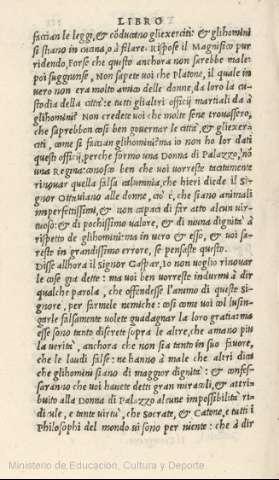 LIBRO
faccian le leggi, & cõducano gliexerciti: & glihomini
si stiano in cucina, o à filare. Rispose il Magnifico pur
ridendo, Forse che questo anchora non sarebbe male:
poi suggiunse, Non sapete voi che Platone, il quale in
vero non era molto amico delle donne, dà loro la cu-
stodia della città: e tutti glialtri officij martiali dà à
glihomini? Non credete voi che molte sene trovassero,
che saprebbon così ben governar le città, & gliexerci
citi, come si faccian glihomini? ma io non ho lor dati
questi officij, perche formo una Donna di Palazzo, nõ
una Regina: conosco ben che voi vorreste tacitamente
rinovar quella falsa calumnia, che hieri diede il Si-
gnor Ottaviano alle donne, ciò è, che siano animali
imperfettissimi, & non capaci di far atto alcun vir-
tuoso: & di pochissimo valore, & di niuna dignità à
rispetto de glihomini: ma in vero & esso, & voi sa-
reste in grandissimo errore, se pensaste questo.
Disse allhora il Signor Gaspar, Io non voglio rinovar
le cose gia dette: ma voi ben vorreste indurmi à dir
qualche parola, che offendesse l'animo di queste si-
gnore, per farmele nemiche: così come voi col lusin-
garle falsamente volete guadagnar la loro gratia: ma
esse sono tanto discrete sopra le altre, che amano piu
la verità, anchora che non sia tanto in suo favore,
che le laudi false: ne hanno à male che altri dica
che glihomini siano di maggior dignità: & confes-
saranno che voi havete detti gran miracoli, & attri
buito alla Donna di Palazzo alcune impossibilità ri-
dicule, e tante virtù, che Socrate, & Catone, e tutti i
Philosophi del mondo vi sono per niente: che à dir
Ministerio de Educación, Cultura y Deporte